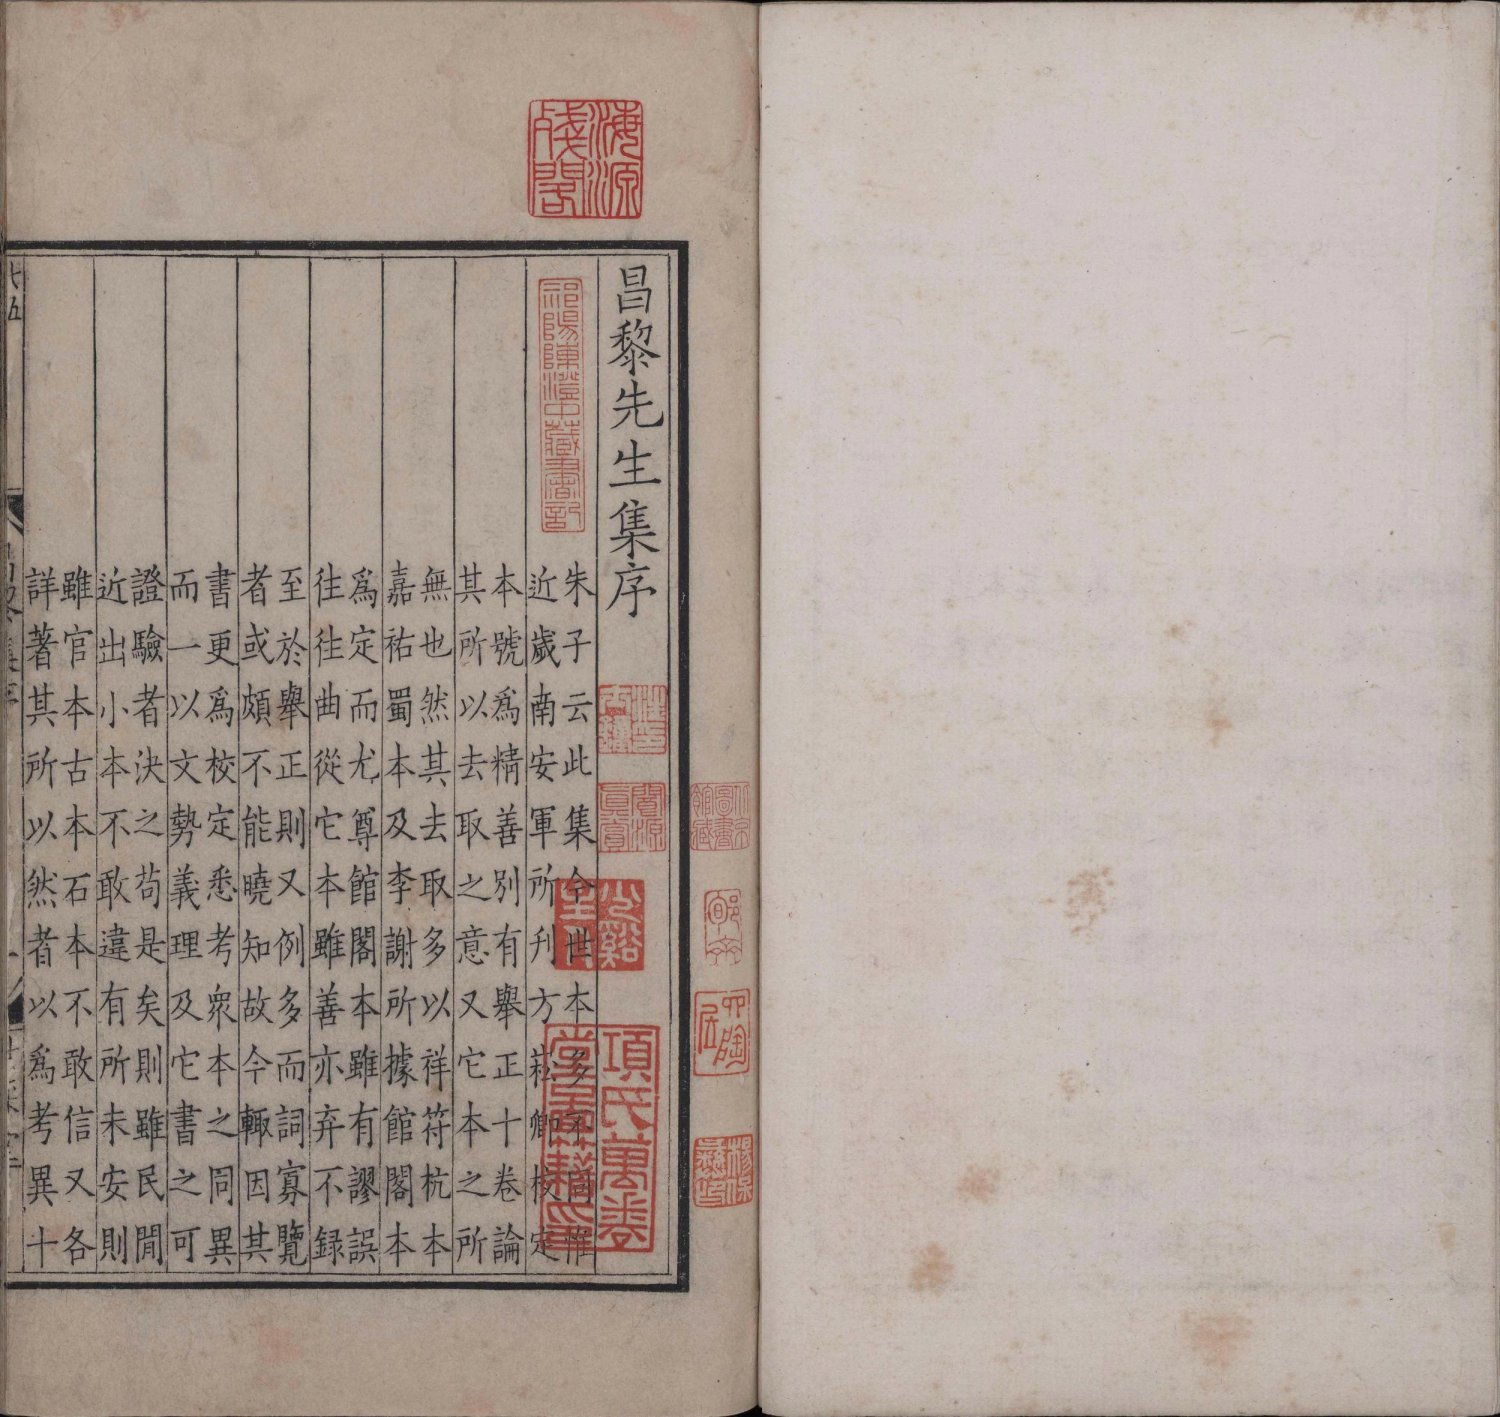 昌黎先生集序
朱子云此集今世本多不同惟
近歲南安軍所刋方崧卿校定
本號爲精善別有舉正十卷論
其所以去取之意又它本之所
無也然其去取多以祥符杭本
嘉祐蜀本及李謝所據館閣本
爲定而尤尊館閣本雖有謬誤
往往曲從它本雖善亦弃不録
至於舉正則又例多而詞寡覽
者或頗不能曉知故今輒因其
書更爲校定悉考衆本之同異
而一以文勢義理及它書之可
證驗者決之茍是矣則雖民閒
近出小本不敢違有所未安則
雖官本古本石本不敢信又各
詳著其所以然者以爲考異十
海源殘閣
祁陽陳澄中藏書記
項氏萬卷堂圖籍印
楊保彝印